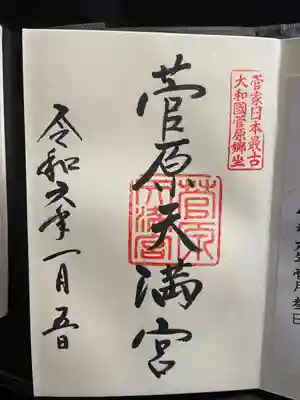 菅家日本最古
大和國菅原鄉坐
菅原天満宮
菅原
天満宮
令和六年一月五日